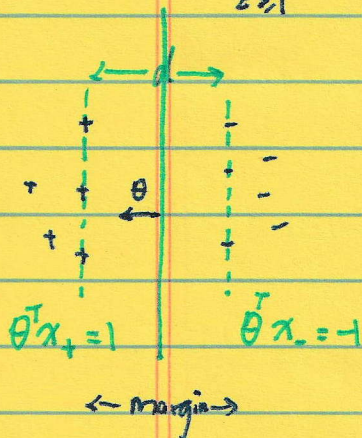 d
θ
θᵀx₊ = 1 θᵀx₋ = -1
← margin →